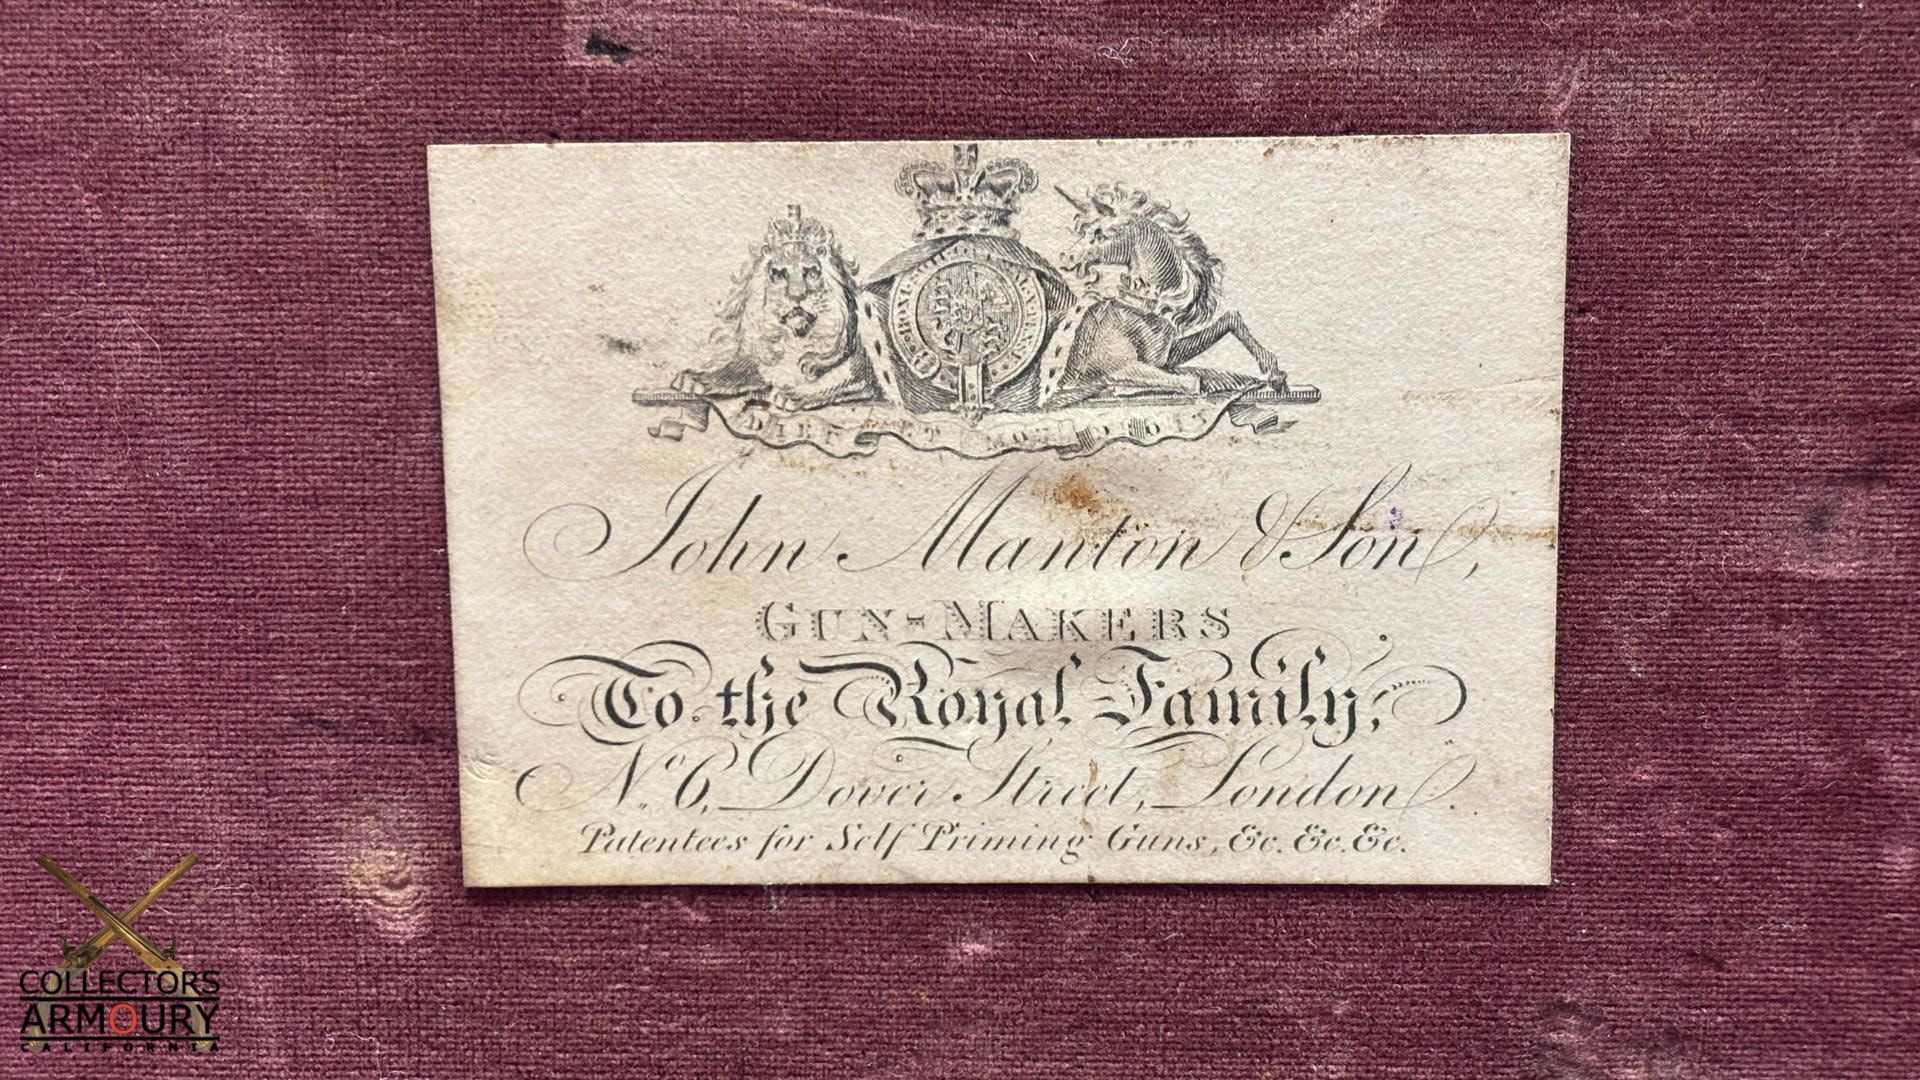 HONI SOIT QUI MAL Y PENSE
DIEU ET MON DROIT
John Manton & Son,
GUN-MAKERS
To the Royal Family,
No. 6, Dover Street, London.
Patentees for Self Priming Guns, &c. &c. &c.
COLLECTORS
ARMOURY
CALIFORNIA